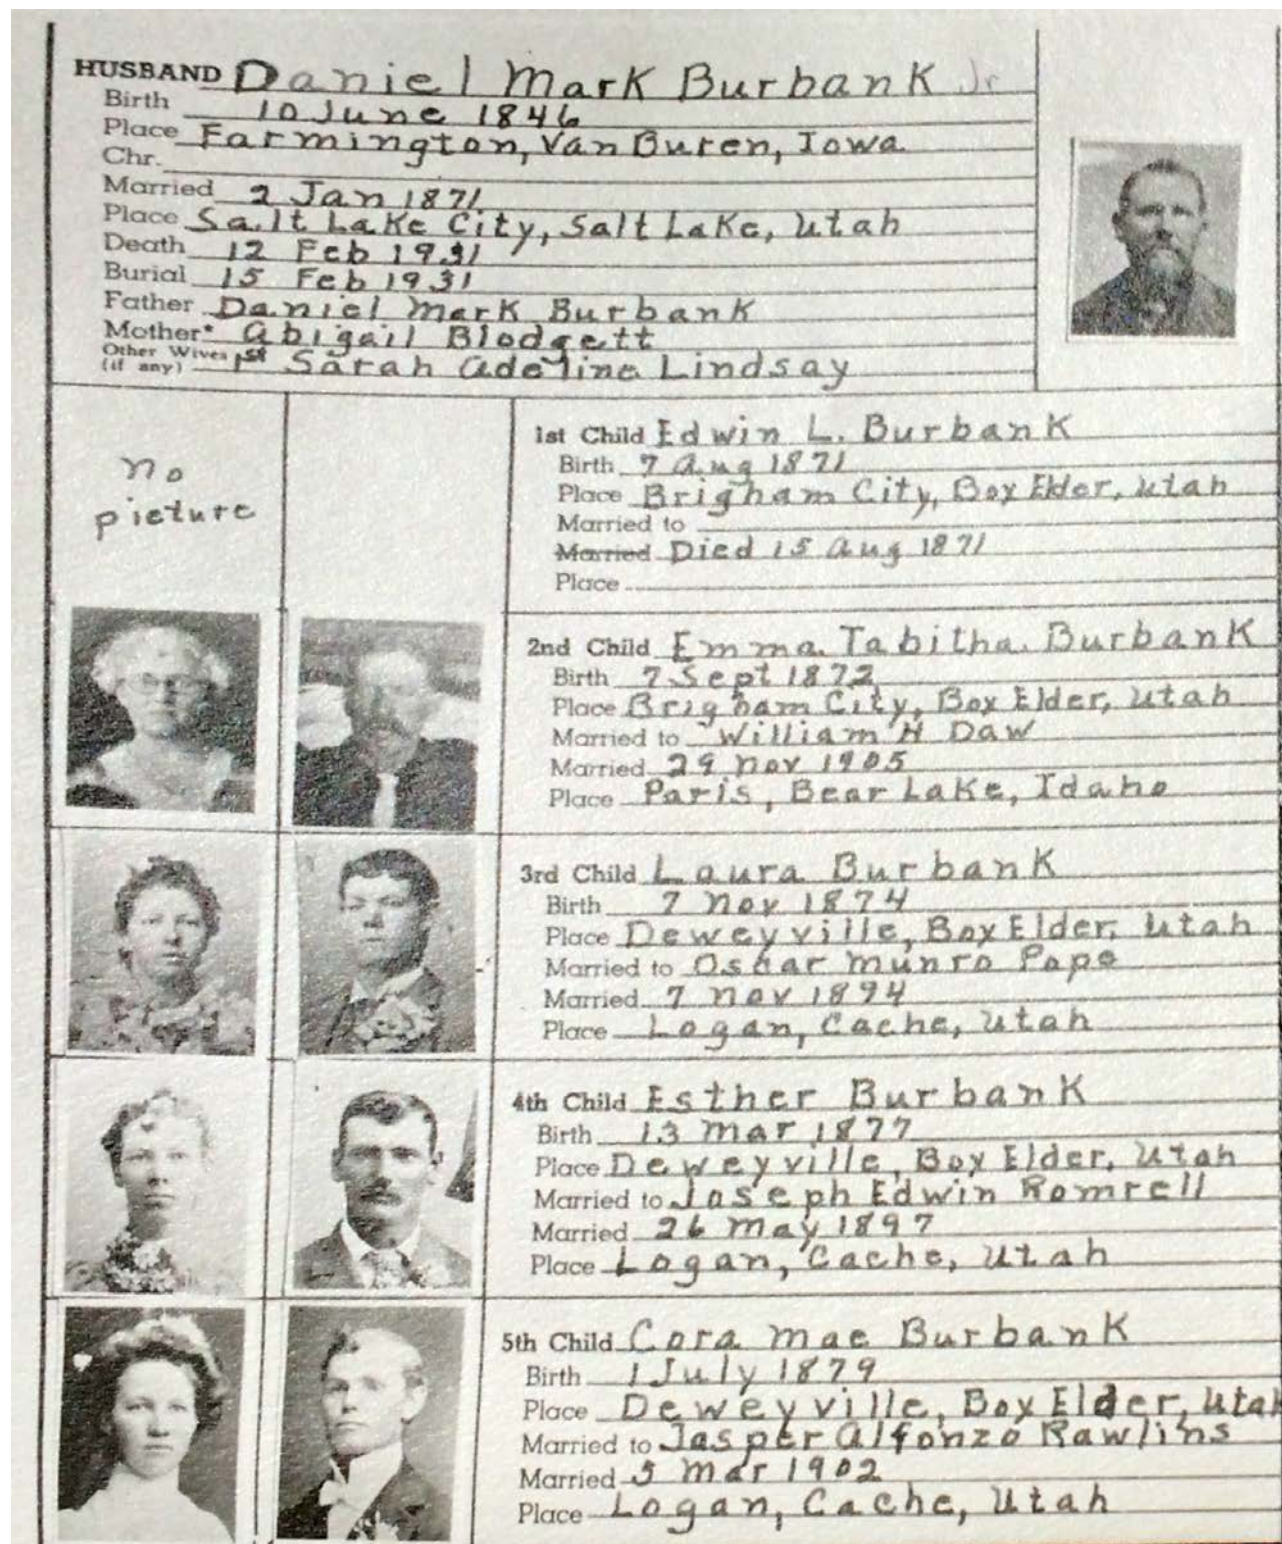 HUSBAND Daniel Mark Burbank Jr
Birth 10 June 1846
Place Farmington, Van Buren, Iowa
Chr.
Married 2 Jan 1871
Place Salt Lake City, Salt Lake, Utah
Death 12 Feb 1931
Burial 15 Feb 1931
Father Daniel Mark Burbank
Mother* Abigail Blodgett
Other Wives (if any) 1st Sarah Adeline Lindsay
no
picture
1st Child Edwin L. Burbank
Birth 7 Aug 1871
Place Brigham City, Box Elder, Utah
Married to
Married Died 15 Aug 1871
Place
2nd Child Emma Tabitha Burbank
Birth 7 Sept 1872
Place Brigham City, Box Elder, Utah
Married to William H Daw
Married 29 Nov 1905
Place Paris, Bear Lake, Idaho
3rd Child Laura Burbank
Birth 7 Nov 1874
Place Deweyville, Box Elder, Utah
Married to Oscar Munro Pope
Married 7 Nov 1894
Place Logan, Cache, Utah
4th Child Esther Burbank
Birth 13 Mar 1877
Place Deweyville, Box Elder, Utah
Married to Joseph Edwin Romrell
Married 26 May 1897
Place Logan, Cache, Utah
5th Child Cora Mae Burbank
Birth 1 July 1879
Place Deweyville, Box Elder, Utah
Married to Jasper Alfonzo Rawlins
Married 5 Mar 1902
Place Logan, Cache, Utah